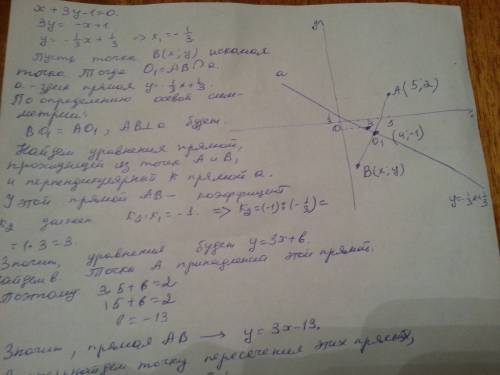 x + 3y - 1 = 0.
3y = -x + 1
y = -1/3 x + 1/3 => k₁ = -1/3
Пусть точка B(x; y) искомая
точка. Тогда O₁ = AB ∩ a.
a - эта прямая y = -1/3 x + 1/3.
По определению осевой сим-
метрии:
BO₁ = AO₁, AB ⊥ a будет.
Найдем уравнения прямой,
проходящей из точек A и B,
и перпендикулярной к прямой a.
У этой прямой AB - коэффицент
k₂ должен k₂·k₁ = -1. => k₂ = (-1):(-1/3) =
= 1·3 = 3.
Значит, уравнения будет y = 3x + b.
Найдем b. Точка A принадлежит этой прямой.
Поэтому: 3·5 + b = 2
15 + b = 2
b = -13
Значит, прямая AB → y = 3x - 13.
найдем точку пересечения этих прямых,
y
a
A(5; 2)
1
0
5
x
O₁ (4; -1)
B(x; y)
y = -1/3 x + 1/3